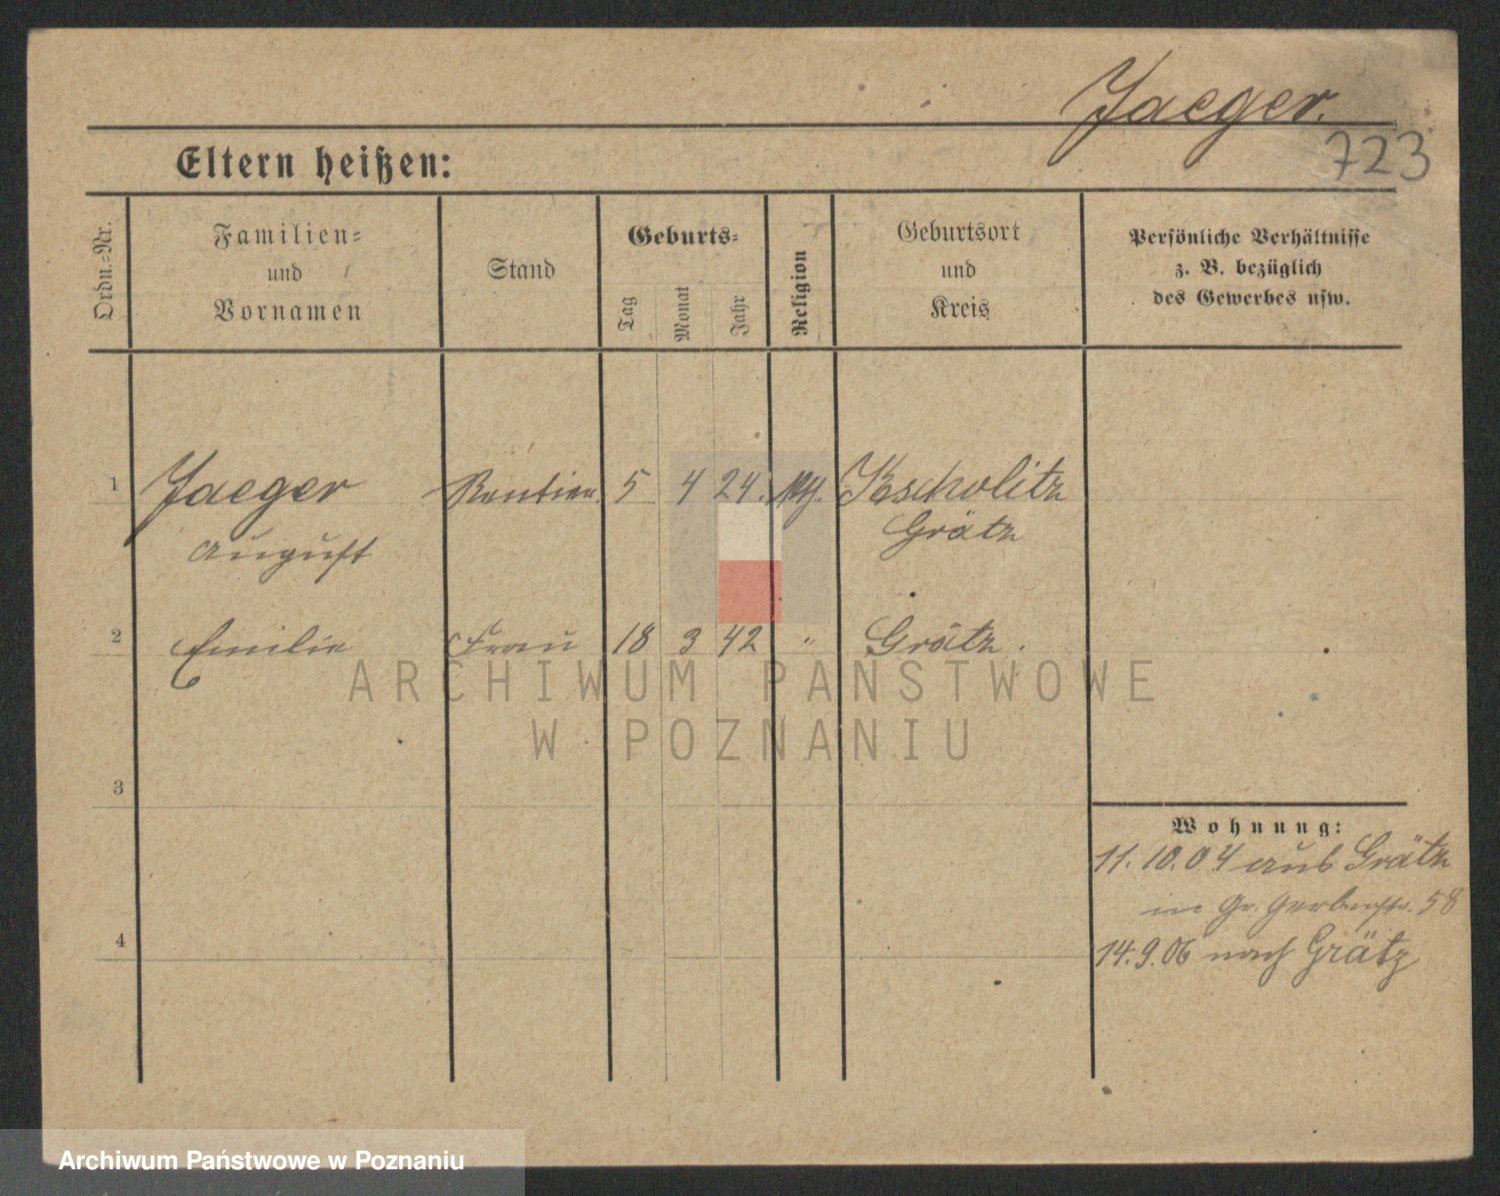 Jaeger.
723
Eltern heißen:
Ordn.-Nr.
Familien- und Vornamen
Stand
Geburts-
Tag
Monat
Jahr
Religion
Geburtsort und Kreis
Persönliche Verhältnisse z. B. bezüglich des Gewerbes usw.
1 Jaeger Rentier 5 4 24.
August Grätz
2 Emilie Frau 18 3 42 " Grätz.
3
4
Wohnung:
11.10.04 aus Grätz
in Gr. Gerberstr. 58
14.9.06 nach Grätz
ARCHIWUM PAŃSTWOWE
W POZNANIU
Archiwum Państwowe w Poznaniu